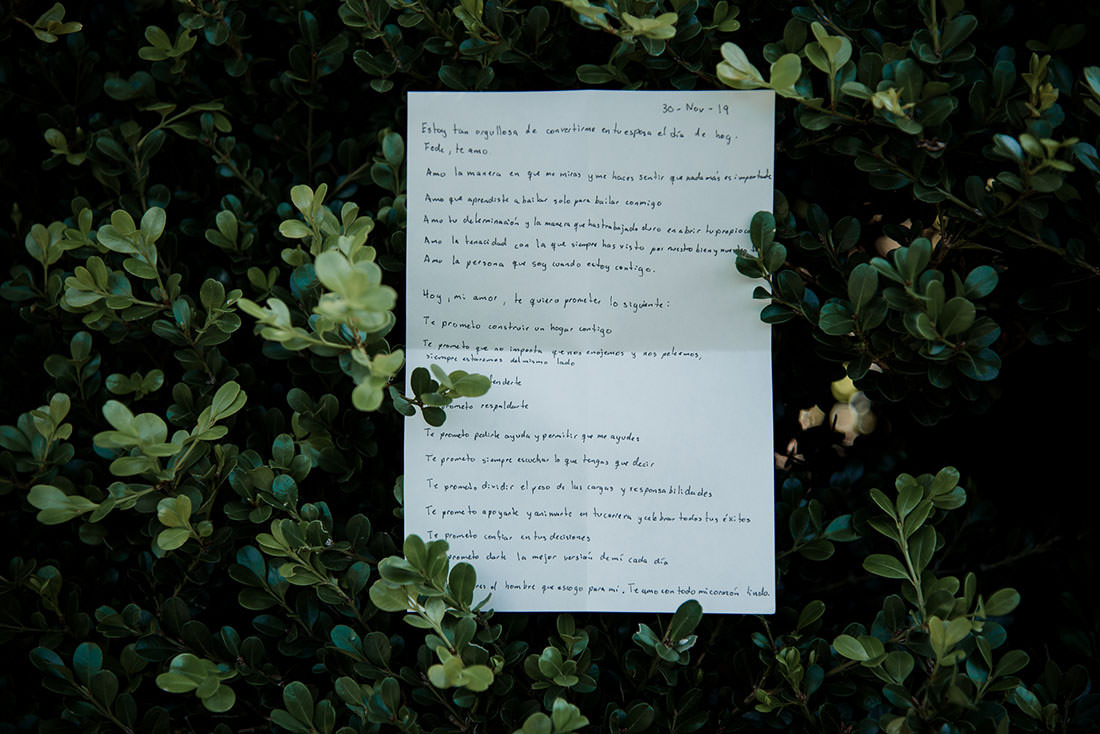 30-Nov-19
Estoy tan orgullosa de convertirme en tu esposa el día de hoy.
Fede, te amo.
Amo la manera en que me miras y me haces sentir que nada más es importante
Amo que aprendiste a bailar solo para bailar conmigo
Amo tu determinación y la manera que has trabajado duro en abrir tu propio
Amo la tenacidad con la que siempre has visto por nuestro bien y nuestro
Amo la persona que soy cuando estoy contigo.
Hoy, mi amor, te quiero prometer lo siguiente:
Te prometo construir un hogar contigo
Te prometo que no importa que nos enojemos y nos peleemos,
siempre estaremos del mismo lado
enderte
prometo respaldarte
Te prometo pedirte ayuda y permitir que me ayudes
Te prometo siempre escuchar lo que tengas que decir
Te prometo dividir el peso de las cargas y responsabilidades
Te prometo apoyarte y animarte en tu carrera y celebrar todos tus éxitos
Te prometo confiar en tus decisiones
prometo darte la mejor versión de mí cada día
eres el hombre que escogo para mi. Te amo con todo mi corazón lindo.